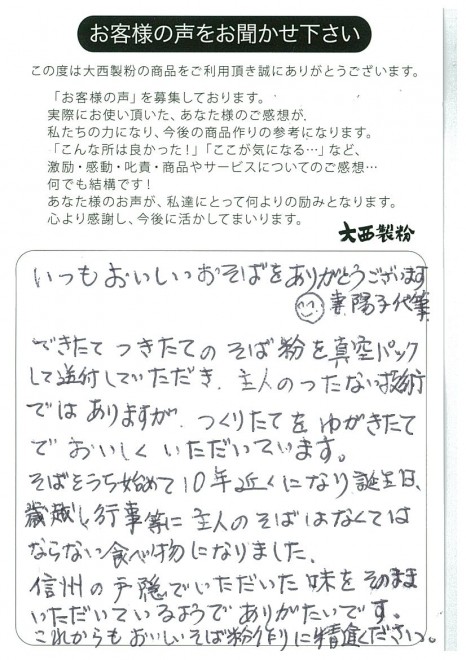 お客様の声をお聞かせ下さい
この度は大西製粉の商品をご利用頂き誠にありがとうございます。
「お客様の声」を募集しております。
実際にお使い頂いた、あなた様のご感想が、
私たちの力になり、今後の商品作りの参考になります。
「こんな所は良かった!」「ここが気になる…」など、
激励・感動・叱責・商品やサービスについてのご感想…
何でも結構です!
あなた様のお声が、私達にとって何よりの励みとなります。
心より感謝し、今後に活かしてまいります。
大西製粉
いつもおいしいおそばをありがとうございます
妻陽子代筆
できたて つきたての そば粉を真空パック
して送付していただき、主人のつたない技術
ではありますが、つくりたてを ゆがきたて
で おいしく いただいています。
そばをうち始めて10年近くになり誕生日、
歳越し行事等に主人のそばはなくては
ならない食べ物になりました。
信州の戸隠でいただいた味をそのまま
いただいているようでありがたいです。
これからもおいしいそば粉作りに精進ください。